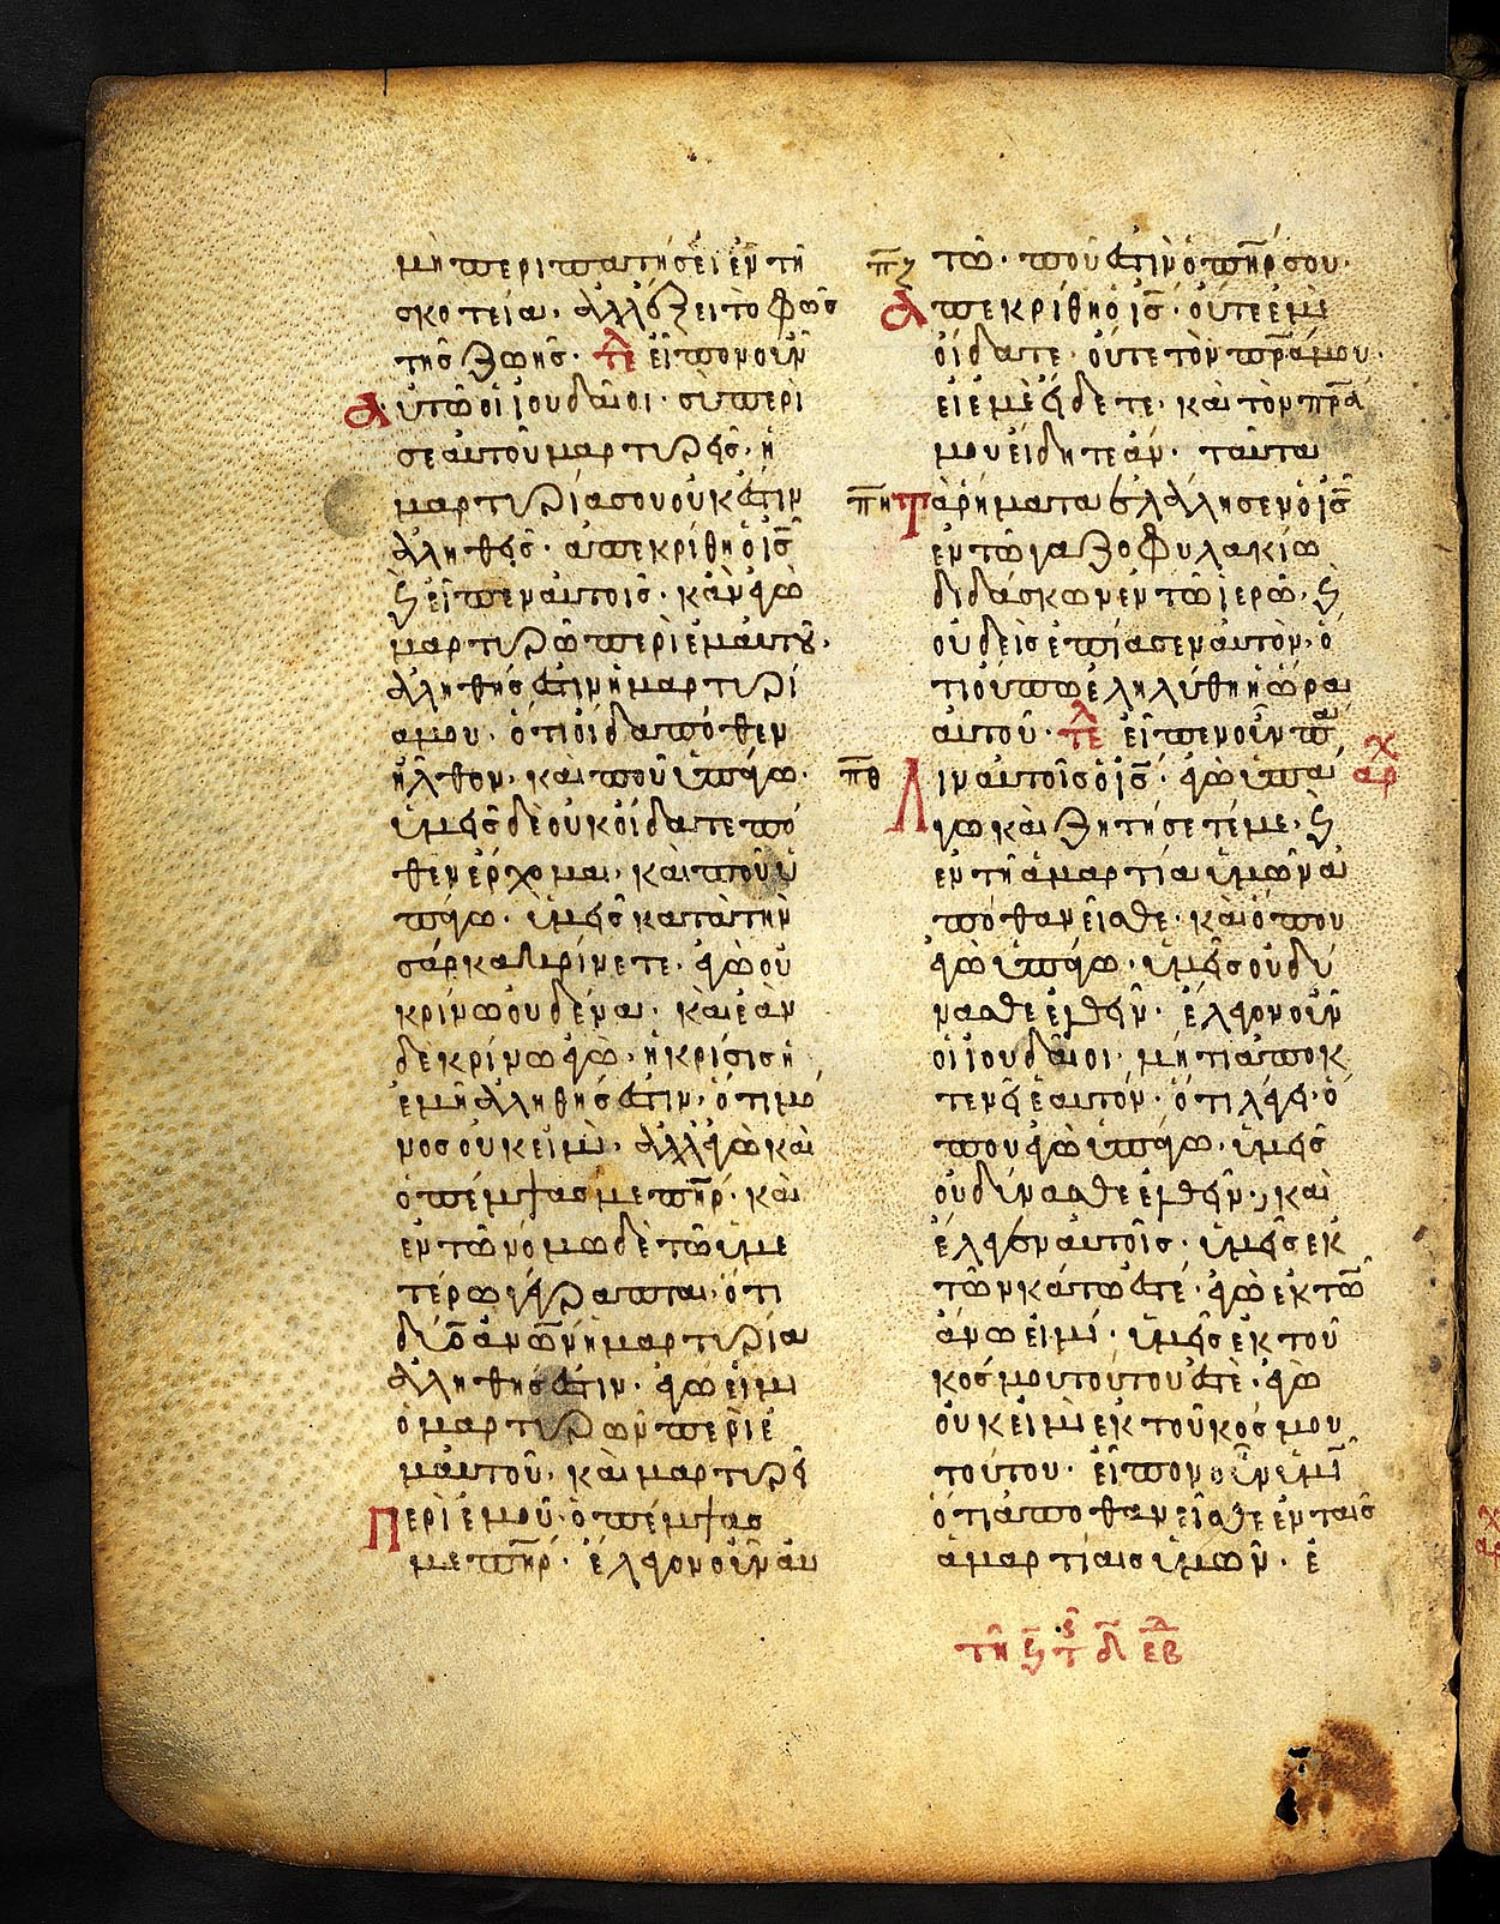 μὴ περιπατήσει ἐν τῆ
σκοτεία· ἀλλ' ἕξει τὸ φῶς
τῆς ζωῆς· τε εἶπον οὖν
αὐτῶ οἱ ἰουδαῖοι· σὺ περὶ
σεαυτοῦ μαρτυρεῖς· ἡ
μαρτυρία σου οὐκ ἔστιν
ἀληθής· ἀπεκρίθη ὁ ις̅
ϗ εἶπεν αὐτοῖς· κἂν ἐγὼ
μαρτυρῶ περὶ ἐμαυτȣ·
ἀληθής ἐστιν ἡ μαρτυρί
α μου· ὅτι οἶδα πόθεν
ἦλθον· καὶ ποῦ ὑπάγω·
ὑμεῖς δὲ οὐκ οἴδατε πό
θεν ἔρχομαι, καὶ ποῦ ὑ
πάγω· ὑμεῖς κατὰ τὴν
σάρκα κρίνετε· ἐγὼ οὐ
κρίνω οὐδένα· καὶ ἐὰν
δὲ κρίνω ἐγὼ· ἡ κρίσις ἡ
ἐμὴ ἀληθής ἐστιν· ὅτι μό
νος οὐκ εἰμὶ· ἀλλ' ἐγὼ καὶ
ὁ πέμψας με πη̅ρ· καὶ
ἐν τῶ νόμω δὲ τῶ ὑμε
τέρω γέγραπται· ὅτι
δύο α̅νω̅ν ἡ μαρτυρία
ἀληθής ἐστιν· ἐγώ εἰμι
ὁ μαρτυρῶν περὶ ἐ
μαυτοῦ· καὶ μαρτυρεῖ
Περὶ ἐμοῦ ὁ πέμψας
με πη̅ρ· ἔλεγον οὖν αὐ
π̅ζ τῶ· ποῦ ἐστὶν ὁ πη̅ρ σου·
Απεκρίθη ὁ ις̅· οὔτε ἐμὲ
οἴδατε· οὔτε τὸν πρ̅α μου·
εἰ ἐμὲ ἤδειτε· καὶ τὸν πρ̅α
μου ἤδειτε ἄν· ταῦτα
π̅η Τὰ ῥήματα ἐλάλησεν ὁ ις̅
ἐν τῶ γαζοφυλακίω
διδάσκων ἐν τῶ ἱερῶ· ϗ
οὐδεὶς ἐπίασεν αὐτὸν· ὅ
τι οὔπω ἐληλύθη ἡ ὥρα
αὐτοῦ· τε εἶπεν οὖν πα
π̅θ Λιν αὐτοῖς ὁ ις̅· ἐγὼ ὑπά αρχ
γω καὶ ζητήσετέ με· ϗ
ἐν τῆ ἁμαρτία ὑμῶν ἀ
ποθανεῖσθε· καὶ ὅπου
ἐγὼ ὑπάγω· ὑμεῖς οὐ δύ
νασθε ἐλθεῖν· ἔλεγον οὖν
οἱ ἰουδαῖοι· μήτι ἀποκ
τενεῖ ἑαυτόν· ὅτι λέγει· ὅ
που ἐγὼ ὑπάγω· ὑμεῖς
οὐ δύνασθε ἐλθεῖν· καὶ
ἔλεγεν αὐτοῖς· ὑμεῖς ἐκ
τῶν κάτω ἐστέ· ἐγὼ ἐκ τῶν
ἄνω εἰμί· ὑμεῖς ἐκ τοῦ
κόσμου τούτου ἐστὲ· ἐγὼ
οὐκ εἰμὶ ἐκ τοῦ κόσμου
τούτου· εἶπον οὖν ὑμῖν
ὅτι ἀποθανεῖσθε ἐν ταῖς
ἁμαρτίαις ὑμῶν· ἐ
τῆ ϛ τ ς δ εβ